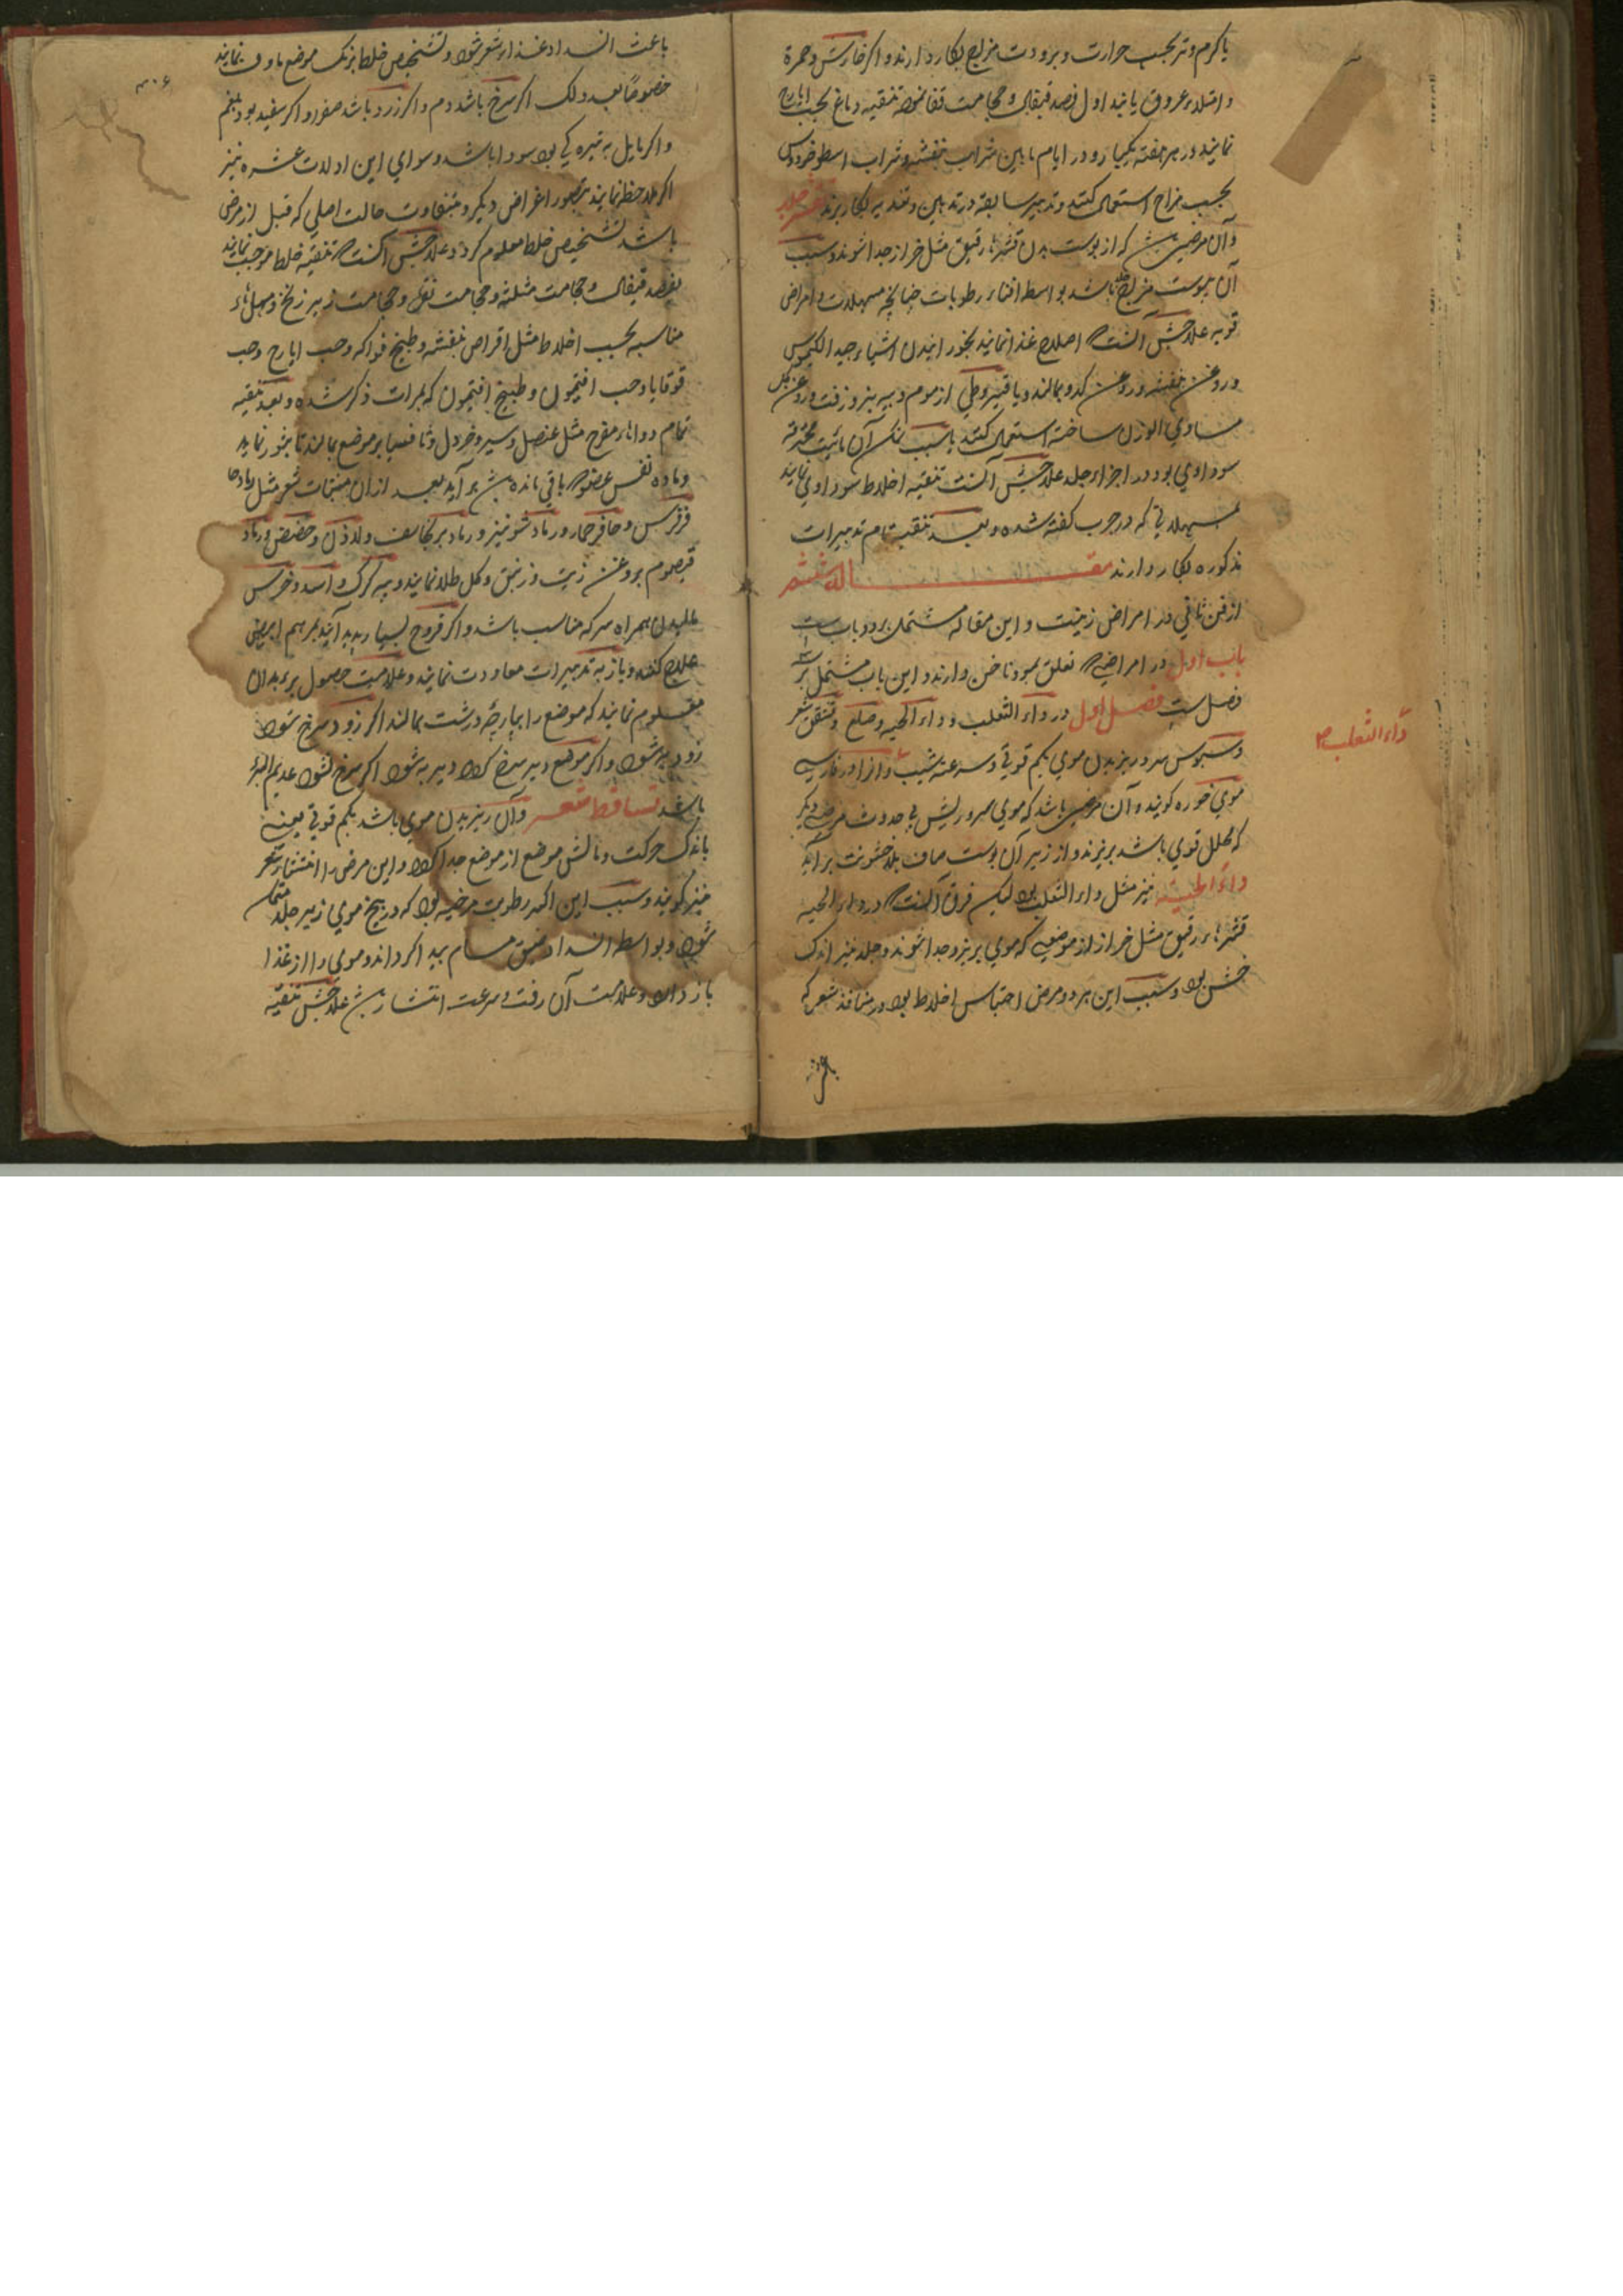 یا کرم و تر بحسب حرارت و برودت مزاج بکار دارند و اگر خارش و حمرة
و امتلاء عروق یابند اول فصد قیفال و حجامت قفا نموده تنقیه دماغ بحب ایارج
نمایند در هر هفته یکبار و در ایام مابین شراب بنفشه و شراب اسطوخودوس
بحسب مزاج استعمال کنند و تدبیر سابقه در تدهین و تغذیه بکار برند تقشر جلد
و آن مرضی ست که از پوست بدن قشرهاء رقیق مثل خراز جدا شوند و سبب
آن یبوست مزاج جلد باشد بواسطه افناء رطوبات چنانچه مسهلات و امراض
قویه علاجش آنست که اصلاح غذا نمایند بخورانیدن اشیاء جید الکیموس
و روغن بنفشه و روغن کدو بمالند و یا قیروطی از موم و پیه بز و زفت و روغن گل
مساوی الوزن ساخته استعمال کنند یا سبب آن مائیت محترقه
سوداوی بود در اجزاء جلد علاجش آنست تنقیه اخلاط سوداوی نمایند
بمسهلاتی که در جرب گفته شده و بعد تنقیه تمام تدبیرات
مذکوره بکار دارند مقاله ششم
از فن ثانی در امراض زینت و این مقاله مشتمل بر دو باب ست
باب اول در امراضی که تعلق بمو و ناخن دارند و این باب مشتمل بر
فصل ست فصل اول در داء الثعلب و داء الحیه و صلع و تشقق شعر
داء الثعلب
و سبوس سر و ریزیدن موی بکم قوتی و سرعت شیب و انرا در فارسی
موی خوره گویند و آن مرضی باشد که موی سر و ریش بی حدوث مرض دیگر
که محلل قوی باشد بریزند و از زیر آن پوست صاف بلا خشونت برآید
داء الحیة نیز مثل داء الثعلب بود لیکن فرق آنست که در داء الحیه
قشرهاء رقیق مثل خراز از موضعی که موی بریزد جدا شوند و جلد نیز اندک
خشن بود و سبب این هر دو مرض احتباس اخلاط بود در منافذ شعر که
باعث
۳۰۶
باعث انسداد غذاء شعر شود و تشخیص خلط برنگ موضع ماوف نمایند
خصوصاً بعد دلک اگر سرخ باشد دم و اگر زرد باشد صفرا و اگر سفید بود بلغم
و اگر مایل به تیره گی بود سودا باشد و سوای این ادلات عشره نیز
اگر ملاحظه نمایند بتصور اعراض دیگر و بتفاوت حالت اصلی که قبل از مرض
باشد تشخیص خلط معلوم گردد علاجش آنست که تنقیه خلط موجب نمایند
بفصد قیفال و حجامت مثلثه و حجامت نقره و حجامت زیر زنخ و مسهلهاء
مناسبه بحسب اخلاط مثل اقراص بنفشه و طبیخ فواکه و حب ایارج و حب
قوقایا و حب افتیمون و طبیخ افتیمون که بمرات ذکر شده و بعد تنقیه
تمام دواهاء مقرح مثل عنصل و سیر و خردل و ثافسیا بر موضع بمالند تا بثور نماید
و ماده نفس عضو که باقی مانده ست برآید بعد از ان منبتات شعر مثل رماد حا
فرفرس و حافر حمار و رماد شونیز و رماد برنجاسف و لاذن و حضض و رماد
قیصوم بروغن زیت و زنبق و گل طلا نمایند و پیه گرگ و اسد و خرس
مالیدن همراه سرکه مناسب باشد و اگر قروح بسیار پدید آیند بمرهم ابیض
علاج کنند و باز به تدبیرات معاودت نمایند و علامت حصول برء بدان
معلوم نمایند که موضع را بپارچه درشت بمالند اگر زود سرخ شود
زود به شود و اگر موضع دیر سرخ گردد دیر به شود اگر سرخ نشود عدیم البرء
باشد تساقط شعر و آن ریزیدن موی باشد بکم قوتی یعنی
باندک حرکت و مالش موضع از موضع جدا گردد و این مرض را انتشار شعر
نیز گویند و سبب این اکثر رطوبت مرخیه بود که در بیخ موی زیر جلد متمکن
شود و بواسطه انسداد ضیق مسام پیدا گرداند و موی را از غذا
باز دارد و علامت آن رقت و سرعت انتشار ست علاجش تنقیه